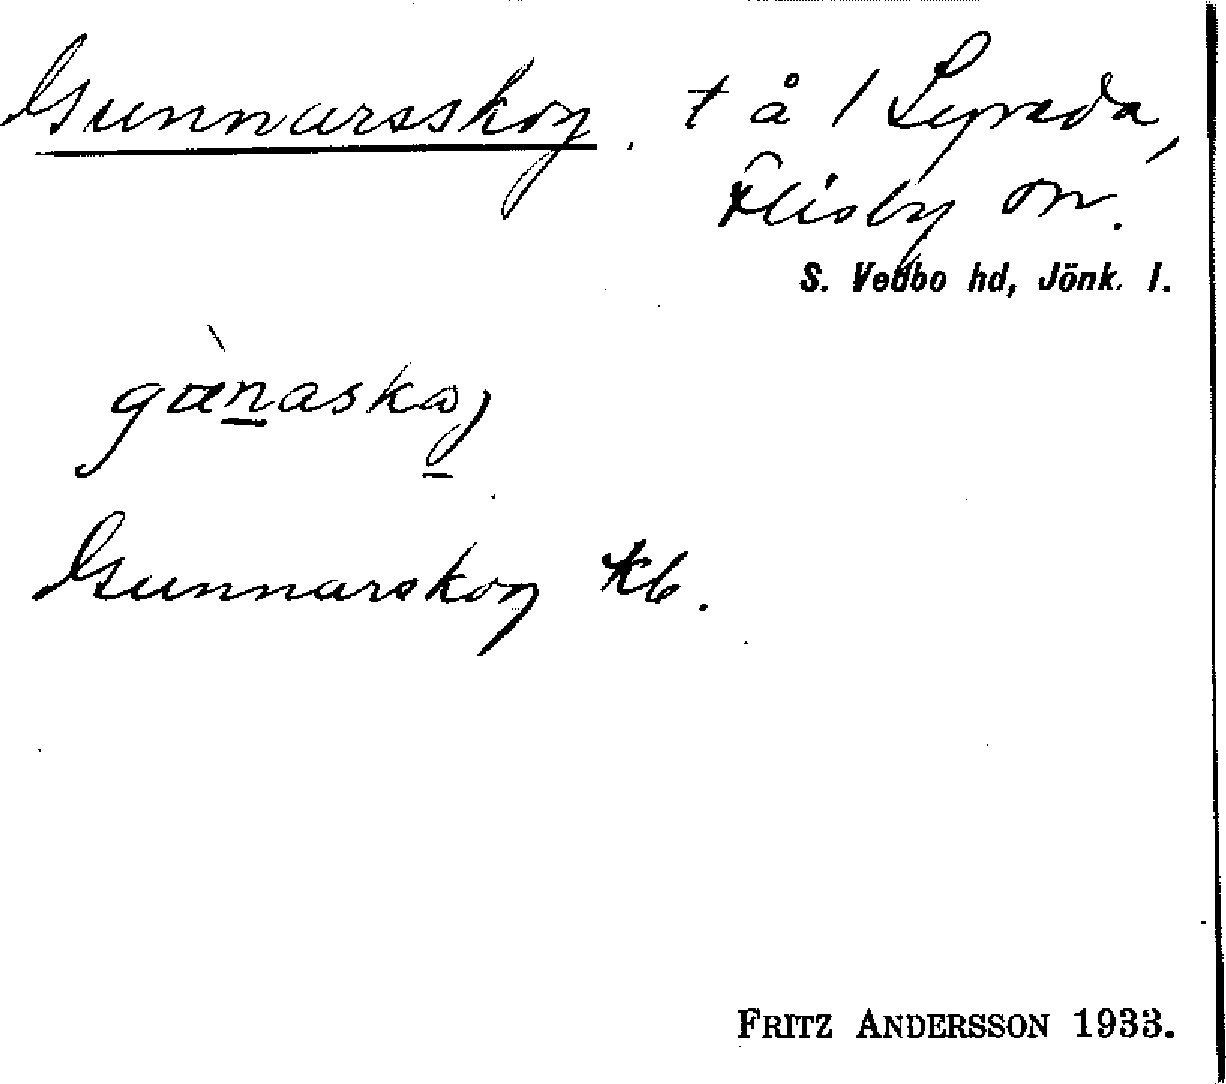 Gunnarsskog. t å 1 Lyveda,
Flisby sn.
S. Vedbo hd, Jönk. l.
Gunnarskog Kb.
FRITZ ANDERSSON 1933.